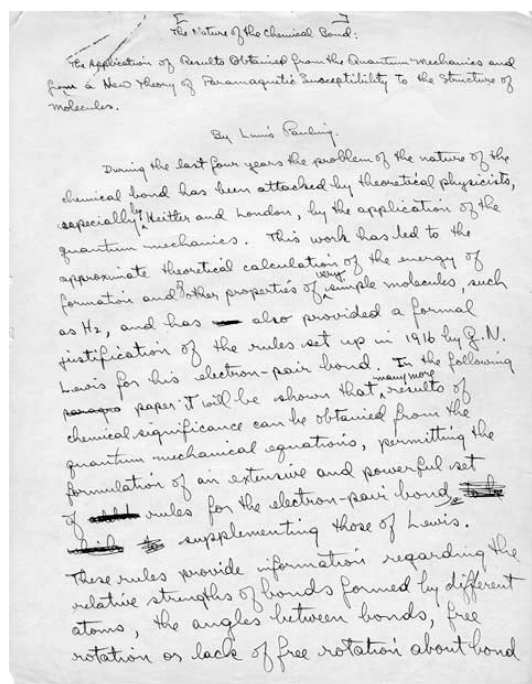 [The Nature of the Chemical Bond:]
The Application of Results Obtained from the Quantum Mechanics and
from a New Theory of Paramagnetic Susceptibility to the Structure of
Molecules.
By Linus Pauling.
During the last four years the problem of the nature of the
chemical bond has been attacked by theoretical physicists,
especially by Heitler and London, by the application of the
quantum mechanics. This work has led to the
approximate theoretical calculation of the energy of
formation and of other properties of very simple molecules, such
as H2, and has also provided a formal
justification of the rules set up in 1916 by G. N.
Lewis for his electron-pair bond. In the following
paper it will be shown that many more results of
chemical significance can be obtained from the
quantum mechanical equations, permitting the
formulation of an extensive and powerful set
of rules for the electron-pair bond
supplementing those of Lewis.
These rules provide information regarding the
relative strengths of bonds formed by different
atoms, the angles between bonds, free
rotation or lack of free rotation about bond